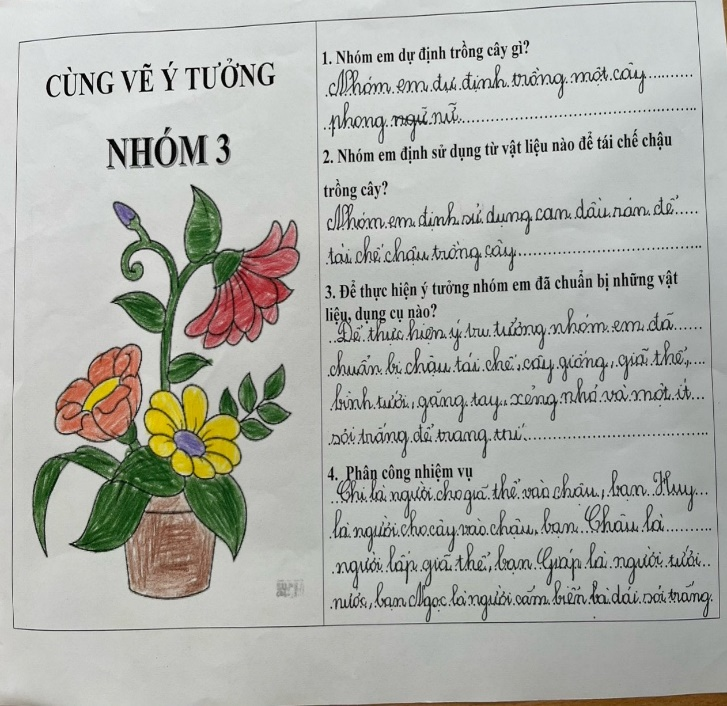 CÙNG VẼ Ý TƯỞNG
NHÓM 3
1. Nhóm em dự định trồng cây gì?
Nhóm em dự định trồng một cây
phong ngữ nữ
2. Nhóm em định sử dụng từ vật liệu nào để tái chế chậu
trồng cây?
Nhóm em định sử dụng can dầu rán để
tái chế chậu trồng cây
3. Để thực hiện ý tưởng nhóm em đã chuẩn bị những vật
liệu, dụng cụ nào?
Để thực hiện ý tưởng nhóm em đã
chuẩn bị chậu tái chế, cây giống, giá thể,
bình tưới, găng tay, xẻng nhỏ và một ít
sỏi trắng để trang trí
4. Phân công nhiệm vụ
Chi là người cho giá thể vào chậu, bạn Huy
là người cho cây vào chậu, bạn Châu là
người lấp giá thể, bạn là người tưới
nước, bạn Ngọc là người cắm biển rải sỏi trắng.